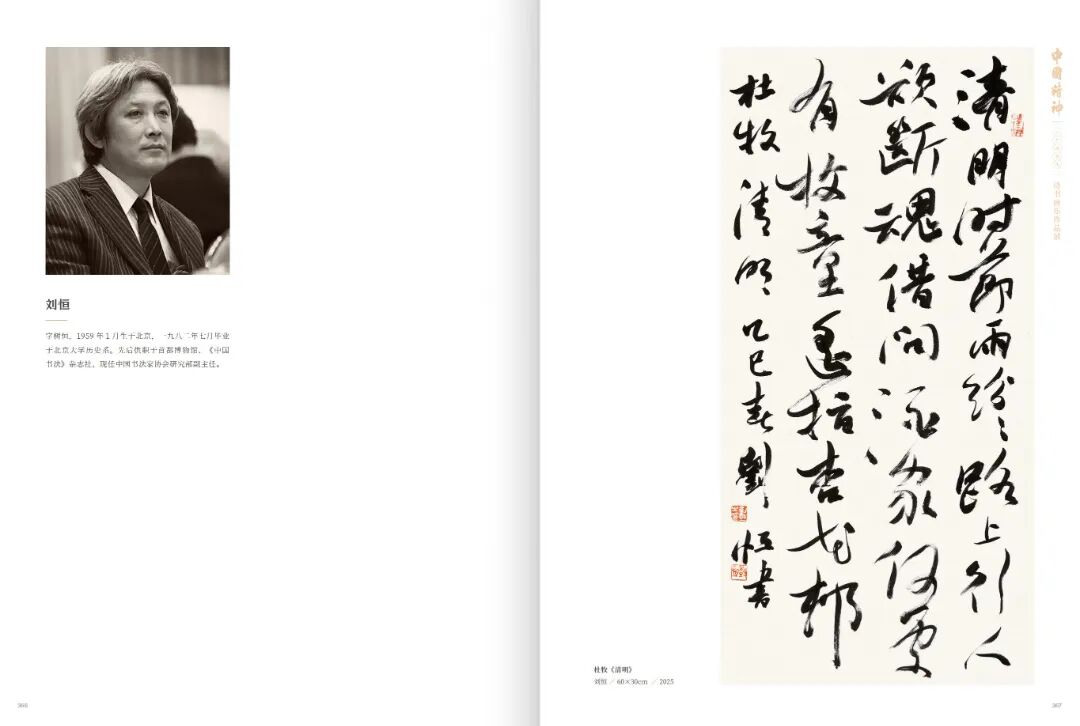 刘恒
字树恒，1959 年 1 月生于北京，一九八二年七月毕业
于北京大学历史系。先后供职于首都博物馆、《中国
书法》杂志社，现任中国书法家协会研究部副主任。
366
中國精神
清明时節雨紛〻路上行人
欲斷魂借問酒家何處
有牧童遙指杏花邨
杜牧清明乙巳春劉恒書
杜牧《清明》
刘恒 / 60×30cm / 2025
367